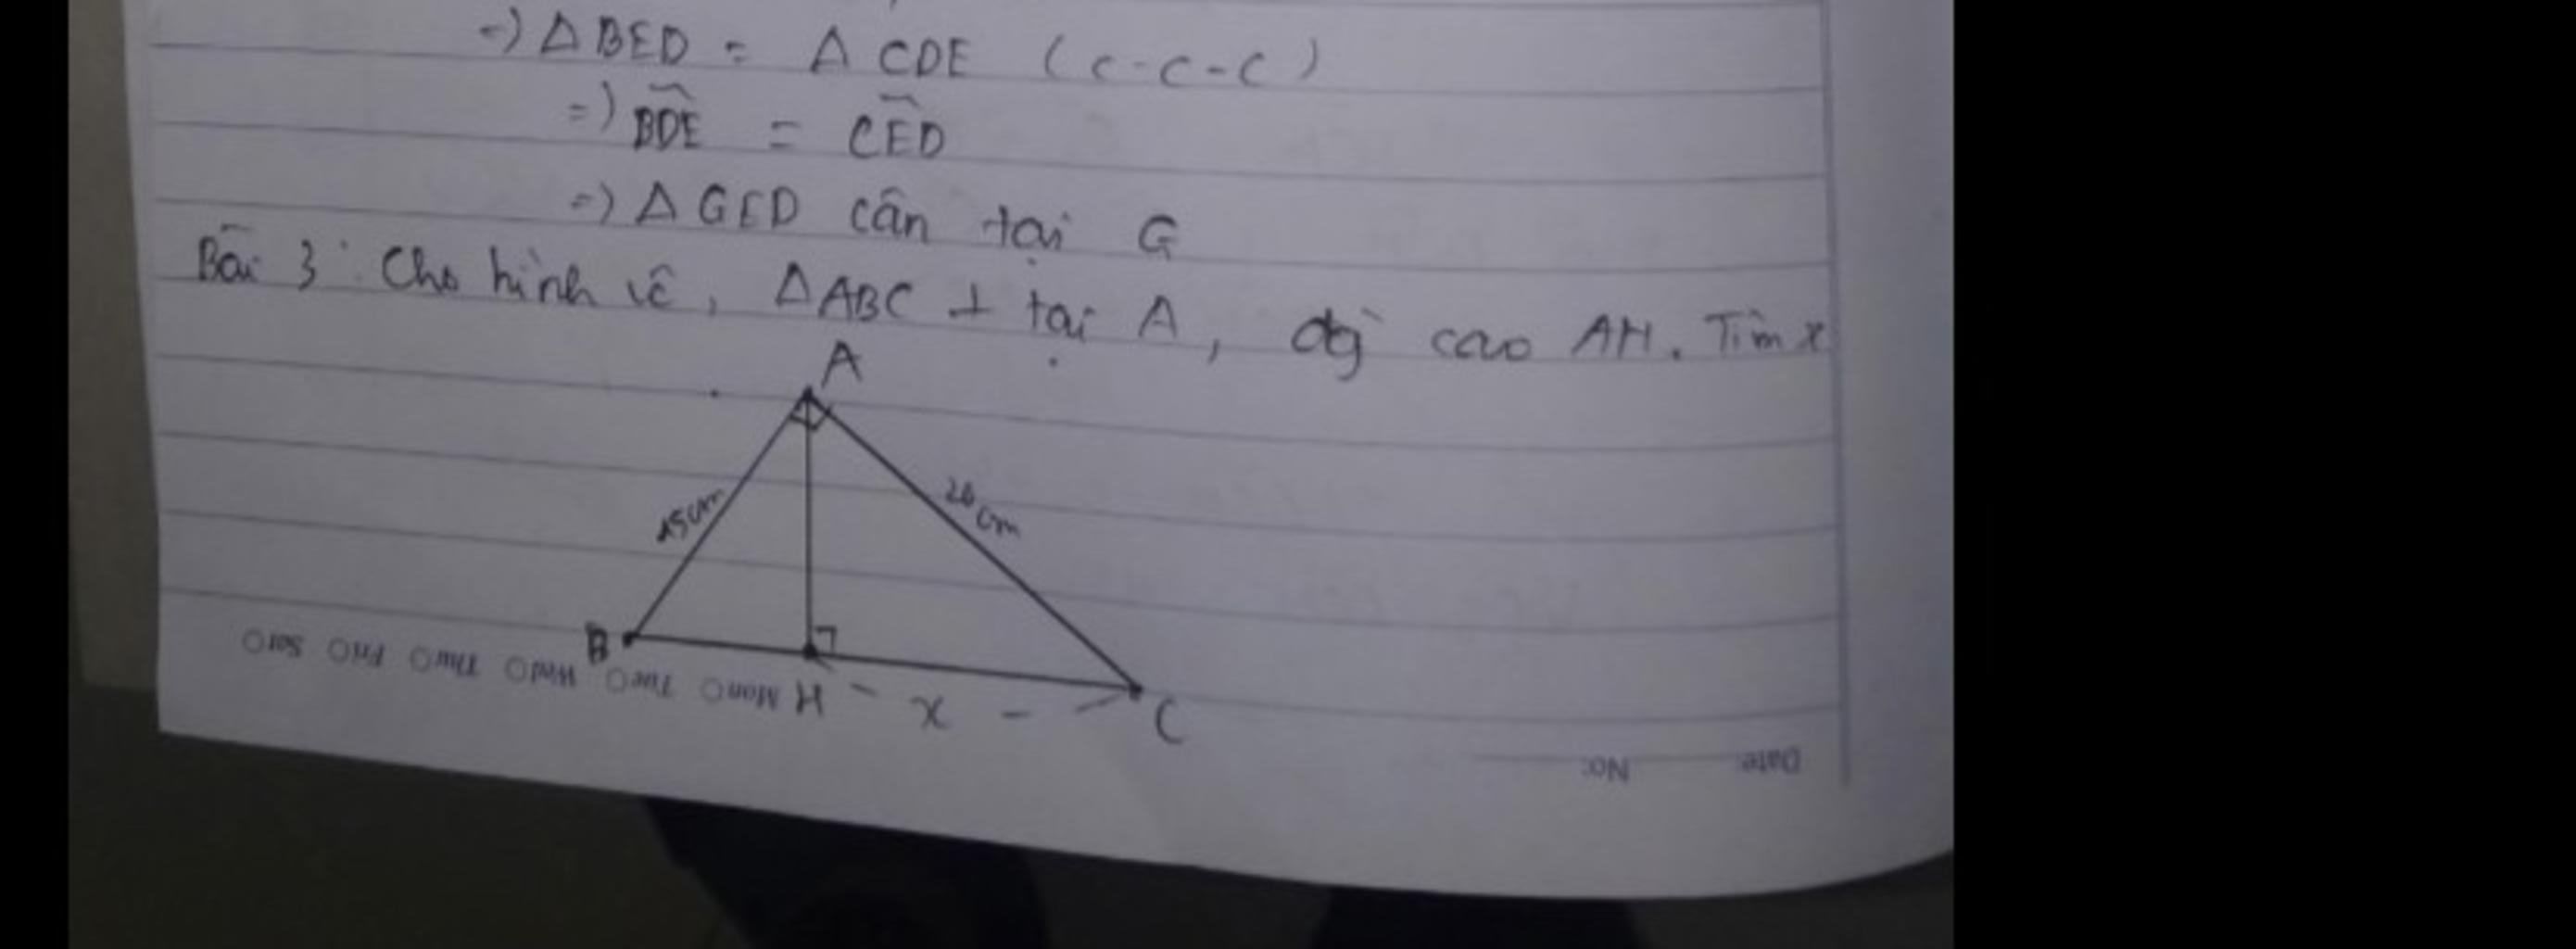 =) Δ BED = Δ CDE (c-c-c)
=) BDE = CED
=) Δ GED cân tại G
Bài 3: Cho hình vẽ, ΔABC ⊥ tại A, đg` cao AH. Tìm x
A
15cm
20cm
B
H - x - - C
Mon○ Tue○ Wed○ Thu○ Fri○ Sat○
Date: No: